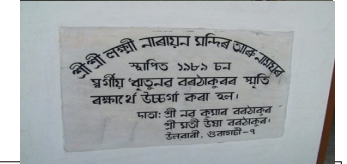 শ্ৰী শ্ৰী লক্ষ্মী নাৰায়ন মন্দিৰ আৰু নামঘৰ
স্থাপিত ১৯৮৯ চন
স্বৰ্গীয় ঋতুনৰ বৰঠাকুৰৰ স্মৃতি
ৰক্ষাৰ্থে উচৰ্গা কৰা হল।
দাতা: শ্ৰী নৰ কুমাৰ বৰঠাকুৰ
শ্ৰী মতী উষা বৰঠাকুৰ।
উলুবাৰী, গুৱাহাটী-৭